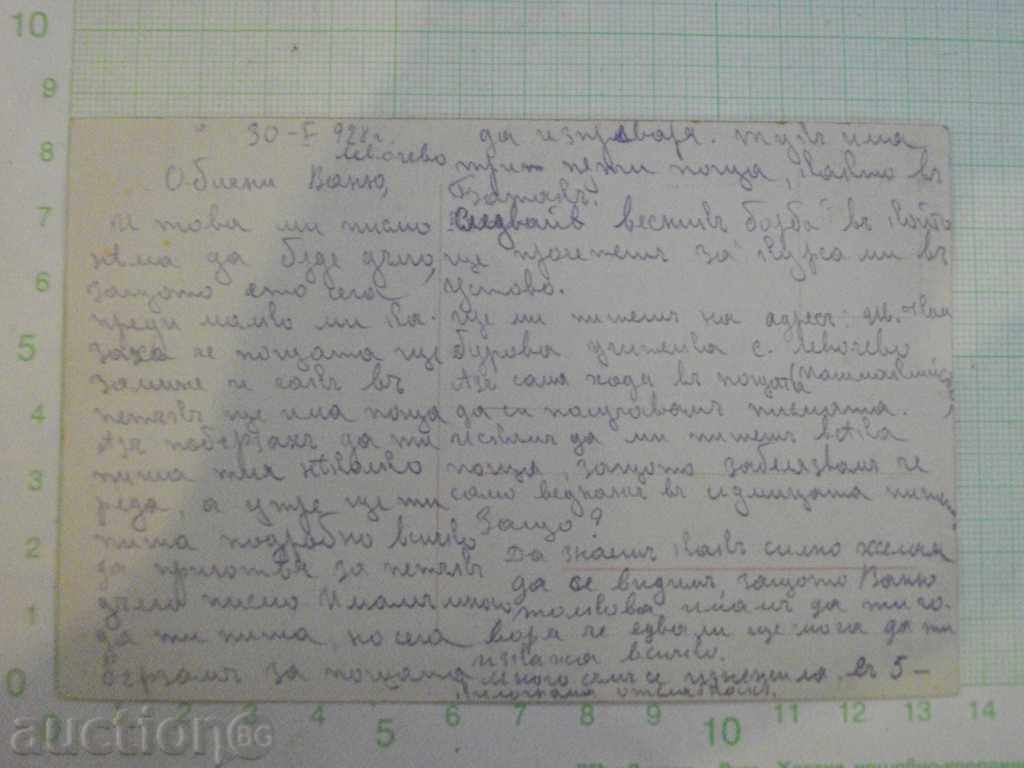 30 – I 928 г.
Левочево
Обични Ваню,
И това ми писмо
нѣма да бѫде дълго,
защото ето сега
преди малко ми ка-
заха че пощата ще
замине и чакъ въ
петъкъ ще има поща
Азъ побързахъ да ти
пиша тия нѣколко
реда, а утре ще ти
пиша подробно всичко
да приготвя за петъкъ
дълго писмо. Имамъ много
да ти пиша, но сега
бързамъ за пощата
да изпроваря. Тукъ има
пѫти поща, както въ
Следвайте вестникъ „борба“ въ който
ще прочетешъ за курса ми въ
Устово.
Ще ми пишешъ на адресъ:
учителка с. Левочево
Азъ сама ходя въ пощата
да си получавамъ писмата.
Искамъ да ми пишешъ всѣка
поща, защото забелязвамъ че
само веднажъ въ седмицата пишешъ
Защо?
Да знаешъ какъ силно желая
да се видимъ, защото Ваню
толкова имамъ да ти го-
воря че едва ли ще мога да ти
изкажа всичко.
Много съмъ се изнежила. въ 5 –
10
9
8
7
6
5
4
3
2
1
0
0 1 2 3 4 5 6 7 8 9 10 11 12 13 14
auctionBG